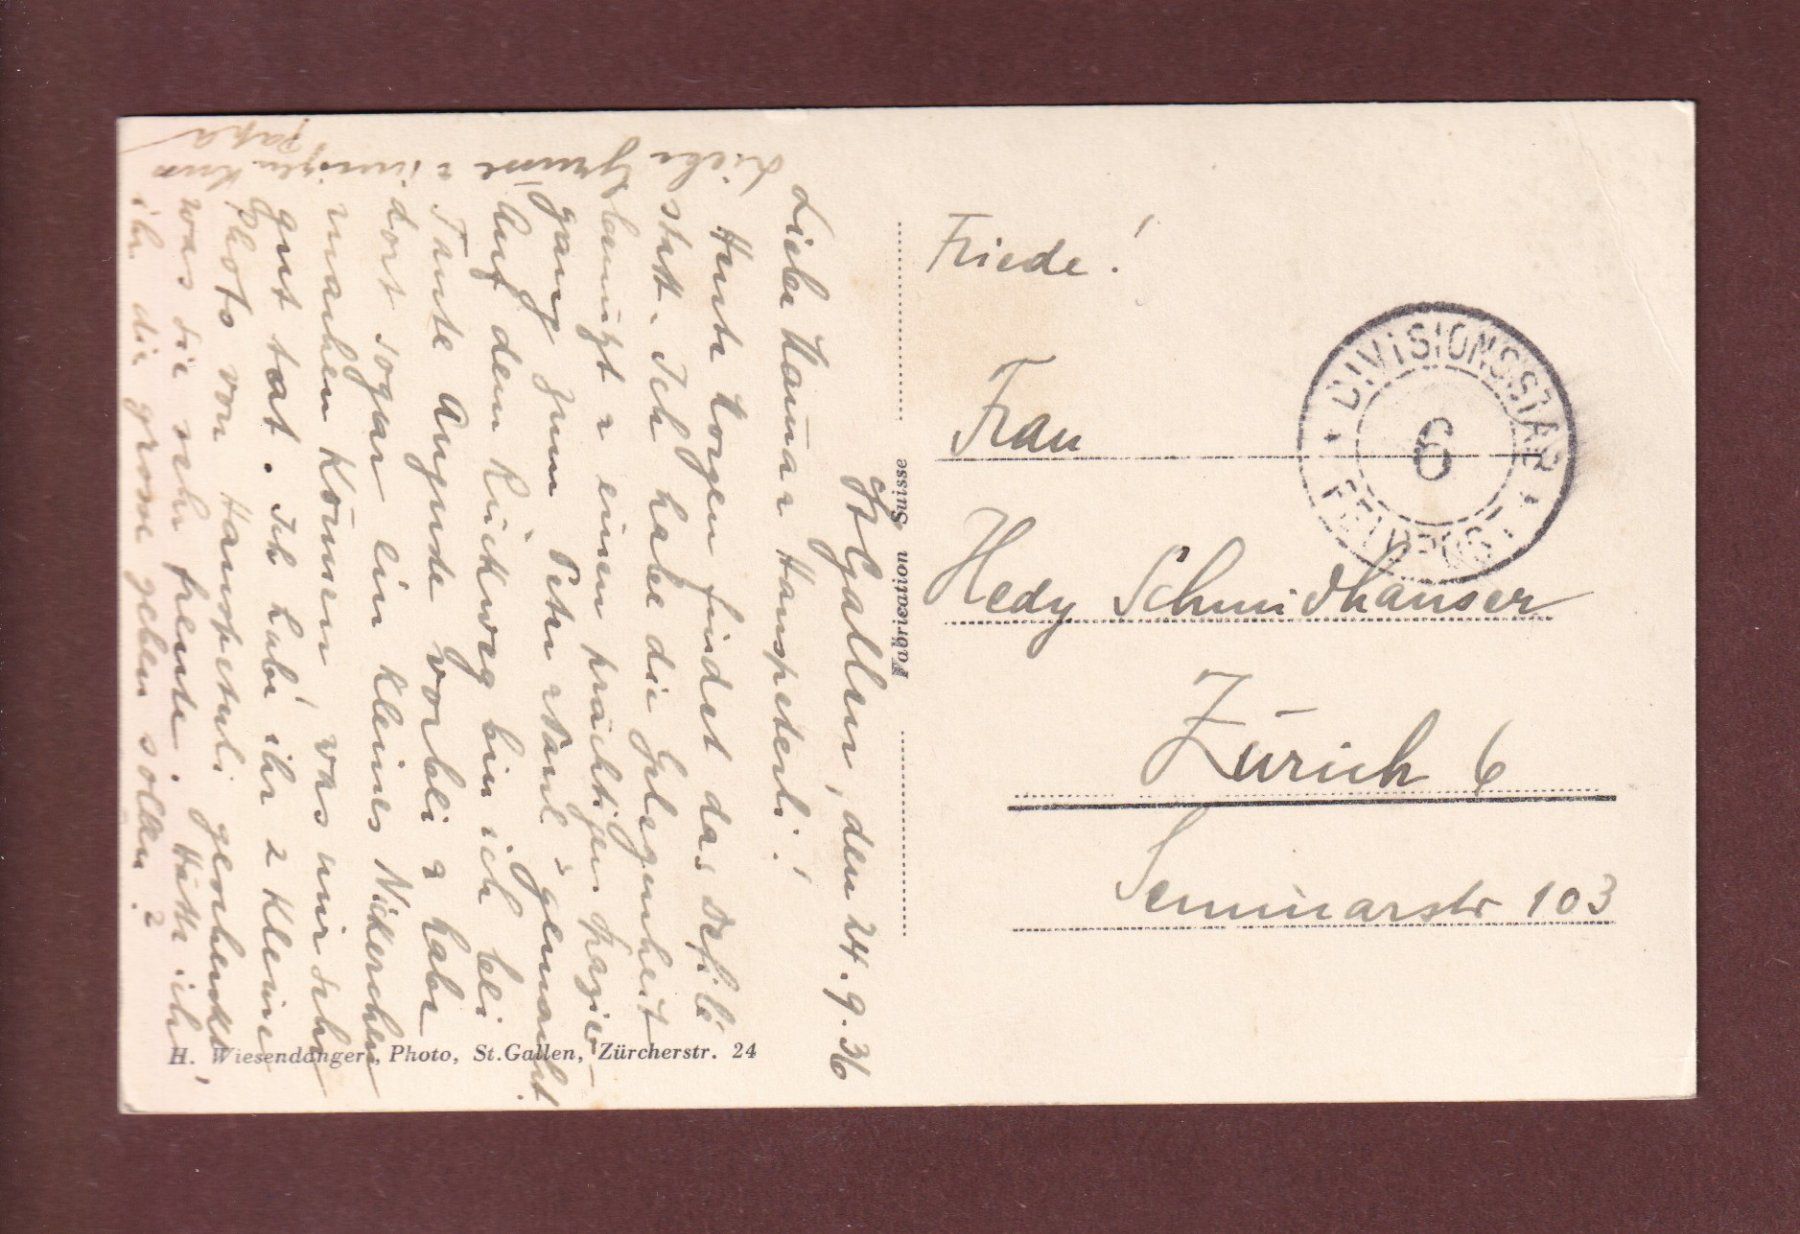 St Gallen, den 24.9.36
Liebe Mama & Hanspeterli!
Heute Morgen findet das Defilé
statt. Ich habe die Gelegenheit
benützt & einen prächtigen Spazier-
gang zum Peter & Paul gemacht.
Auf dem Rückweg bin ich bei
Tante vorbei & habe
dort sogar ein kleines Nickerchen
machen können, was mir sehr
gut tat. Ich habe ihr 2 kleine
Photo von Hanspeterli geschenkt,
was sie sehr freute. Hätte ich
ihr die grosse geben sollen?
Liebe Grüsse & innigen Kuss
Papa
Fabrication Suisse
H. Wiesendanger, Photo, St.Gallen, Zürcherstr. 24
Friede!
Frau
Hedy Schmidhauser
Zürich 6
Seminarstr 103
DIVISIONSSTAB
6
FELDPOST